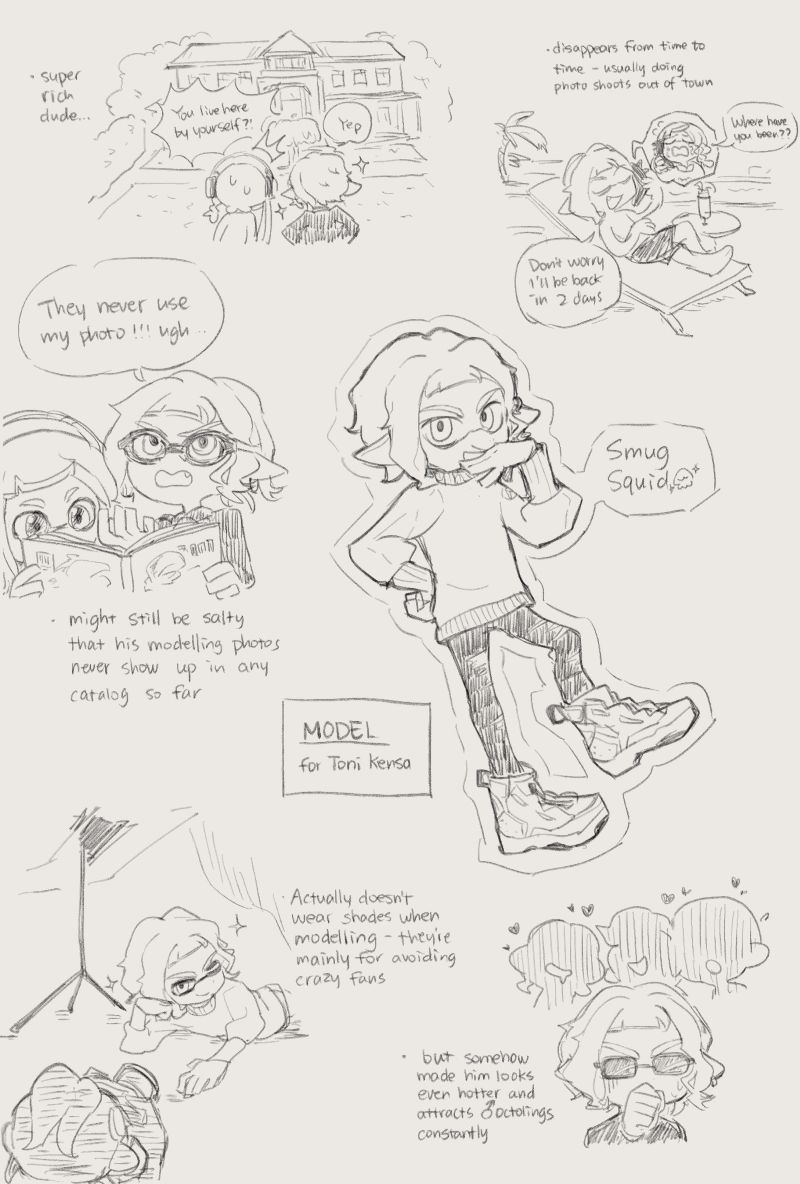 · super
rich
dude...
You live here
by yourself?!
Yep
· disappears from time to
time - usually doing
photo shoots out of town
Where have
you been??
Don't worry
I'll be back
in 2 days
They never use
my photo!!! ugh...
Smug
Squid
· might still be salty
that his modelling photos
never show up in any
catalog so far
MODEL
for Toni Kensa
· Actually doesn't
wear shades when
modelling - they're
mainly for avoiding
crazy fans
· but somehow
made him looks
even hotter and
attracts ♂octolings
constantly